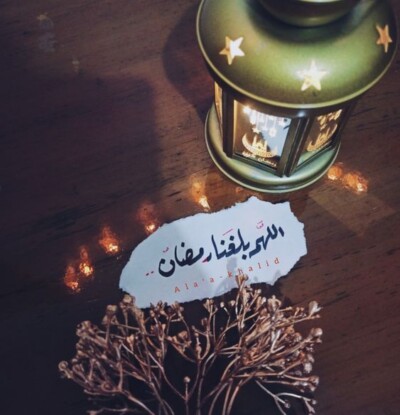 اللهم بلغنا رمضان ..
Ala'a-khalid